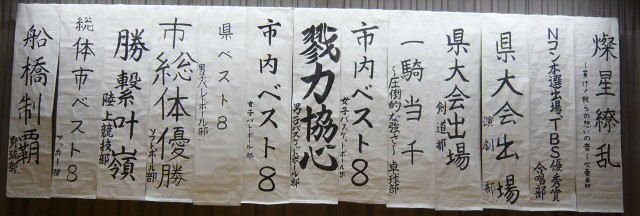 燦星繚乱
吹奏楽部
Nコン本選出場TBS優秀賞
合唱部
県大会出場
演劇部
県大会出場
剣道部
一騎当千
～圧倒的な強さで～卓球部
市内ベスト8
女子バスケットボール部
戮力協心
男子バスケットボール部
市内ベスト8
女子バレーボール部
県ベスト8
男子バレーボール部
市総体優勝
ソフトボール部
勝繋叶嶺
陸上競技部
総体市ベスト8
サッカー部
船橋制覇
野球部